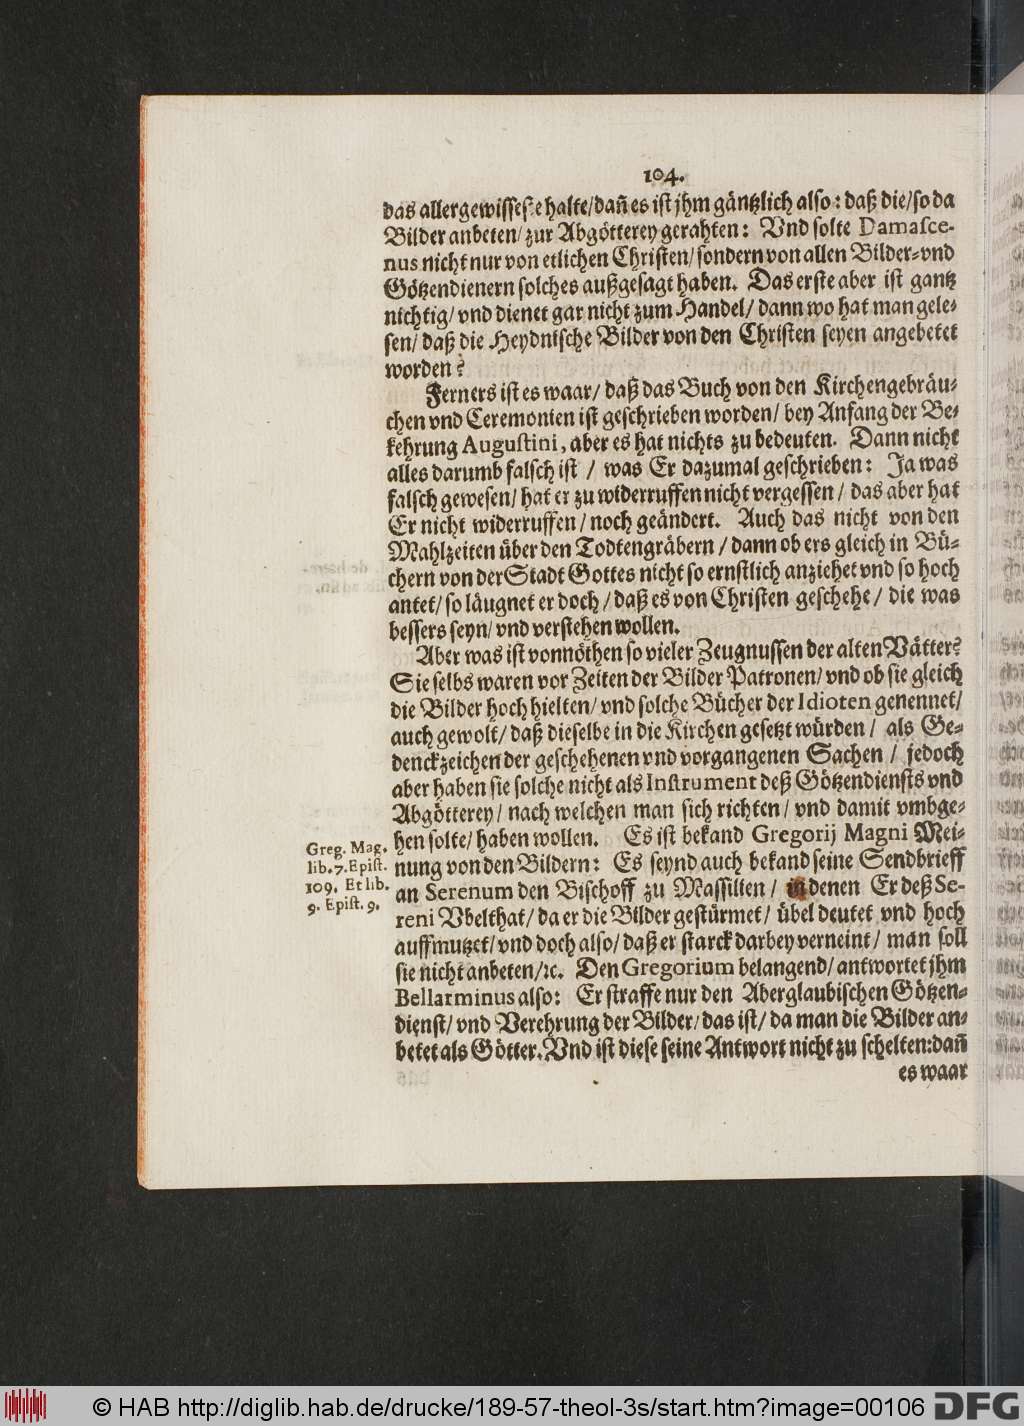 104.
das allergewisseste halte/dañ es ist jhm gäntzlich also: daß die/so da
Bilder anbeten/ zur Abgötterey gerahten: Vnd solte Damasce-
nus nicht nur von etlichen Christen/ sondern von allen Bilder-vnd
Götzendienern solches außgesagt haben. Das erste aber ist gantz
nichtig/ vnd dienet gar nicht zum Handel/ dann wo hat man gele-
sen/ daß die Heydnische Bilder von den Christen seyen angebetet
worden?
Ferners ist es waar/ daß das Buch von den Kirchengebräu-
chen vnd Ceremonien ist geschrieben worden/ bey Anfang der Be-
kehrung Augustini, aber es hat nichts zu bedeuten. Dann nicht
alles darumb falsch ist / was Er dazumal geschrieben: Ja was
falsch gewesen/ hat er zu widerruffen nicht vergessen / das aber hat
Er nicht widerruffen / noch geändert. Auch das nicht von den
Mahlzeiten über den Todtengräbern / dann ob ers gleich in Bü-
chern von der Stadt Gottes nicht so ernstlich anziehet vnd so hoch
antet/ so läugnet er doch / daß es von Christen geschehe / die was
bessers seyn/ vnd verstehen wollen.
Aber was ist vonnöthen so vieler Zeugnussen der alten Vätter?
Sie selbs waren vor Zeiten der Bilder Patronen/ vnd ob sie gleich
die Bilder hoch hielten/ vnd solche Bücher der Idioten genennet/
auch gewolt/ daß dieselbe in die Kirchen gesetzt würden / als Ge-
denckzeichen der geschehenen vnd vorgangenen Sachen / jedoch
aber haben sie solche nicht als Instrument deß Götzendiensts vnd
Abgötterey / nach welchen man sich richten / vnd damit vmbge-
hen solte/ haben wollen. Es ist bekand Gregorij Magni Mei-
nung von den Bildern: Es seynd auch bekand seine Sendbrieff
an Serenum den Bischoff zu Massilien / in denen Er deß Se-
reni Vbelthat/ da er die Bilder gestürmet/ übel deutet vnd hoch
auffmutzet/ vnd doch also/ daß er starck darbey verneint/ man soll
sie nicht anbeten/ꝛc. Den Gregorium belangend/ antwortet jhm
Bellarminus also: Er straffe nur den Aberglaubischen Götzen-
dienst/ vnd Verehrung der Bilder/ das ist/ da man die Bilder an-
betet als Götter. Vnd ist diese seine Antwort nicht zu schelten: dañ
es waar
Greg. Mag.
lib. 7. Epist.
109. Et lib.
9. Epist. 9.
© HAB http://diglib.hab.de/drucke/189-57-theol-3s/start.htm?image=00106
DFG